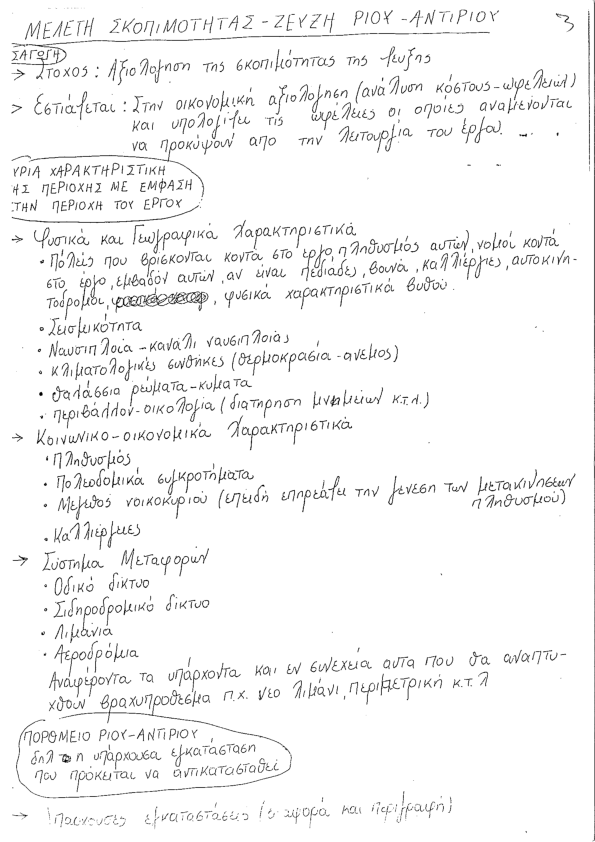 ΜΕΛΕΤΗ ΣΚΟΠΙΜΟΤΗΤΑΣ - ΖΕΥΞΗ ΡΙΟΥ - ΑΝΤΙΡΙΟΥ
3
ΣΑΓΩΓΗ
→ Στοχος : Αξιολογηση της σκοπιμότητας της ζευξης
> Εστιάζεται : Στην οικονομική αξιολογηση (ανάλυση κόστους-ωφελειών)
και υπολογίζει τις ωφέλειες οι οποιες αναμένονται
να προκύψουν απο την λειτουργία του έργου. - ..
ΥΡΙΑ ΧΑΡΑΚΤΗΡΙΣΤΙΚΗ
ΗΣ ΠΕΡΙΟΧΗΣ ΜΕ ΕΜΦΑΣΗ
ΣΤΗΝ ΠΕΡΙΟΧΗ ΤΟΥ ΕΡΓΟΥ
→ Φυσικά και Γεωγραφικά Χαρακτηριστικά
• Πόλεις που βρίσκονται κοντά στο έργο, πληθυσμός αυτών, νομοί κοντά
στο έργο, εμβαδόν αυτών, αν είναι πεδιάδες, βουνά, καλλιέργιες, αυτοκινη-
τοδρομοι, , φυσικά χαρακτηριστικά βυθού.
• Σεισμικότητα
• Ναυσιπλοία - κανάλι ναυσιπλοιάς
• κλιματολογικές συνθήκες (θερμοκρασία - ανεμος)
• θαλάσσια ρεύματα - κυματα
• περιβάλλον - οικολογία (διατήρηση μνημείων κ.τ.λ.)
→ Κοινωνικο-οικονομικά Χαρακτηριστικά
• Πληθυσμός
• Πολεοδομικά συγκροτήματα
• Μεγεθος νοικοκυριού (επειδή επηρεάζει την γένεση των μετακινήσεων
πληθυσμού)
• Καλλιέργειες
→ Σύστημα Μεταφορών
• Οδικό δίκτυο
• Σιδηροδρομικό δίκτυο
• Λιμάνια
• Αεροδρόμια
Αναφέροντα τα υπάρχοντα και εν συνεχεία αυτα που θα αναπτυ-
χθουν βραχυπρόθεσμα π.χ. νεο λιμάνι, περιμετρική κ.τ.λ
ΠΟΡΘΜΕΙΟ ΡΙΟΥ - ΑΝΤΙΡΙΟΥ
δηλ η υπάρχουσα εγκατάσταση
που πρόκειται να αντικατασταθεί
→ εγκαταστάσεις και περιγραφή)